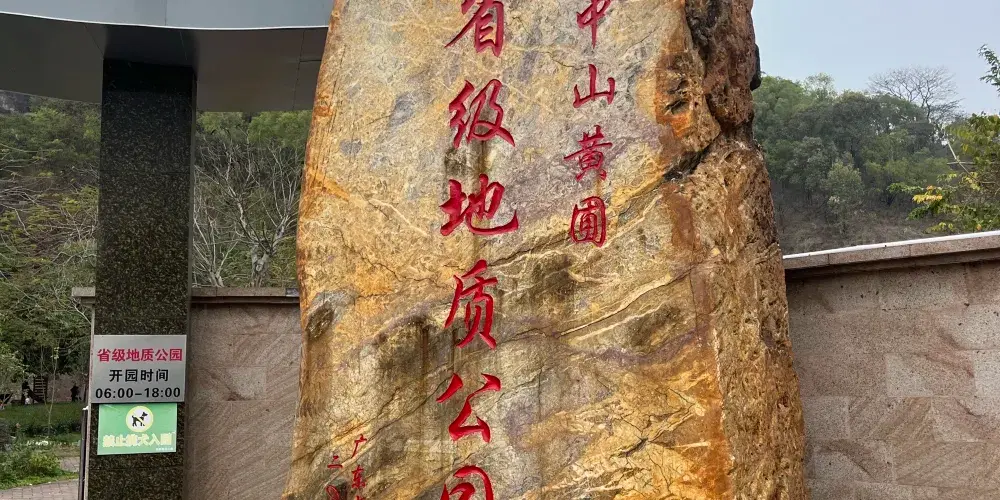 中山黄圃
省级地质公园
广东
省级地质公园
开园时间
06:00-18:00
禁止携犬入园